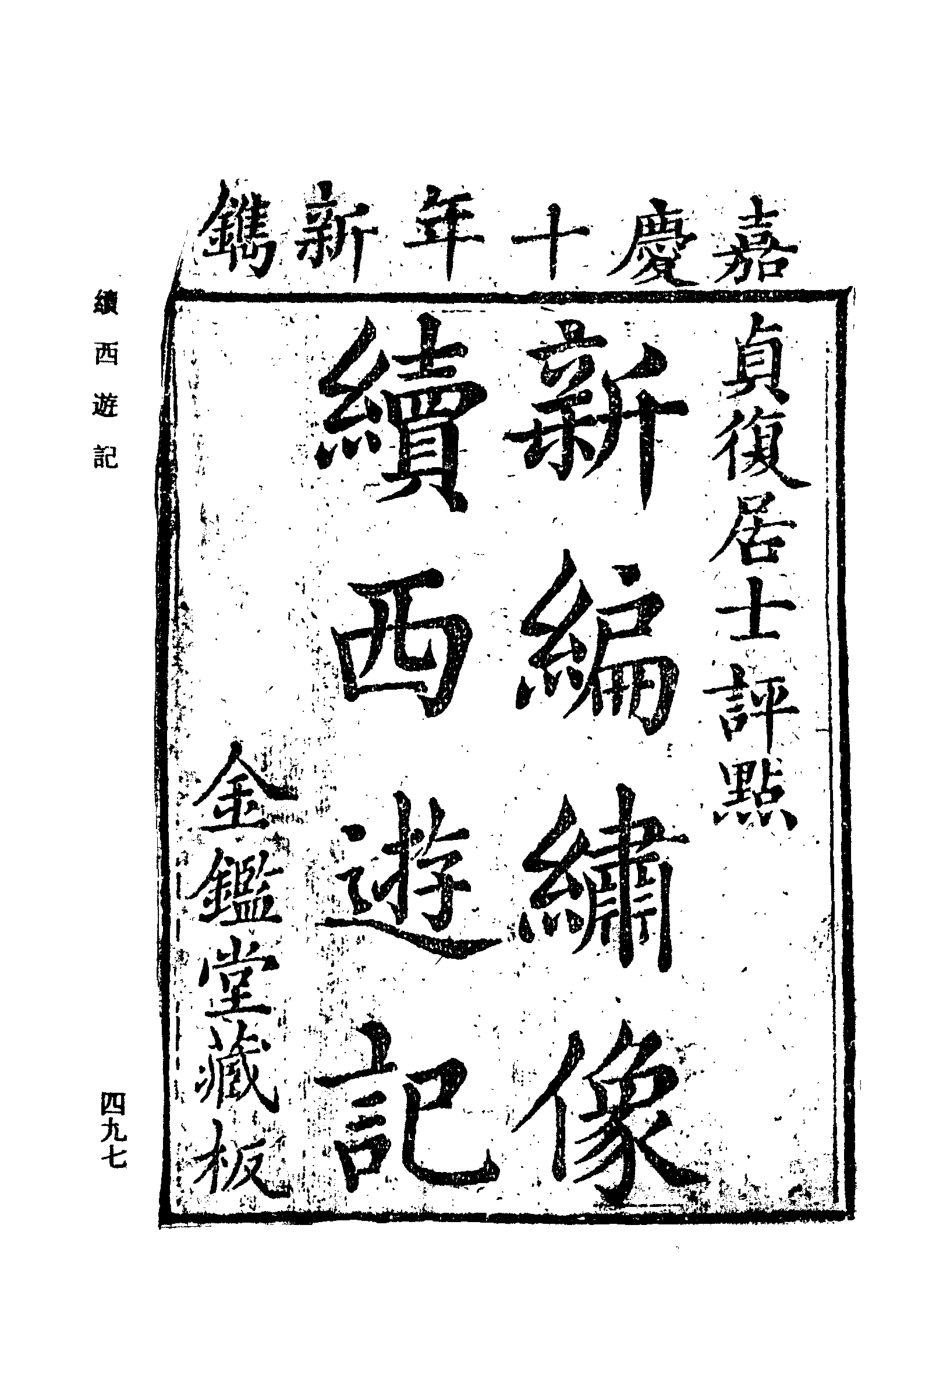 嘉慶十年新鐫
貞復居士評點
新編繡像
續西遊記
金鑑堂藏板
續西遊記
四九七